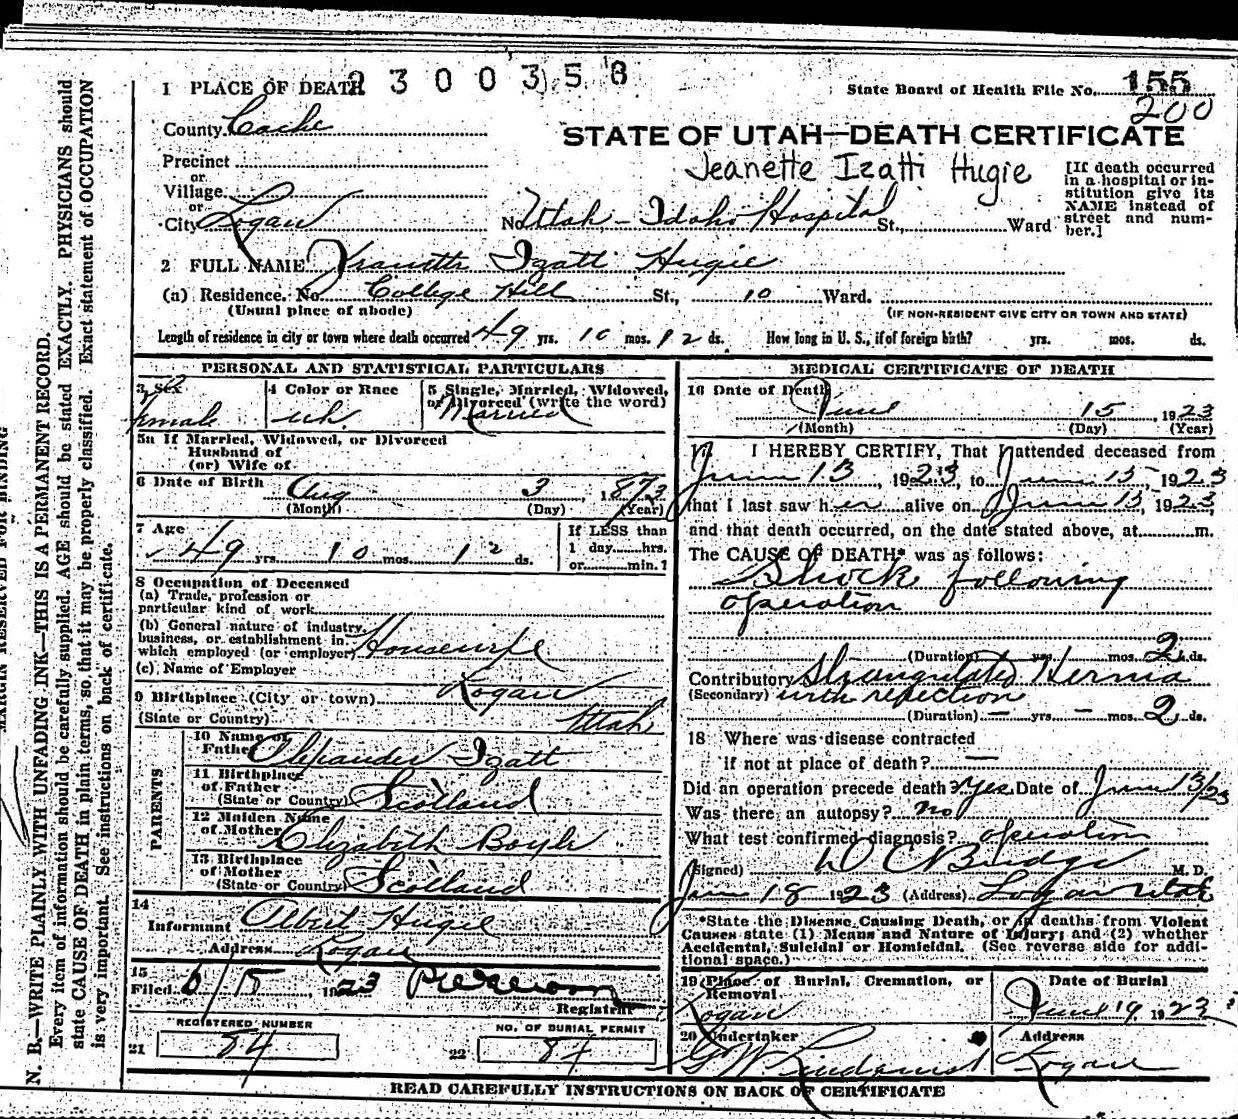 2300358
1 PLACE OF DEATH
State Board of Health File No. 155
200
County Cache
STATE OF UTAH—DEATH CERTIFICATE
Precinct
or
Village
or
City Logan
Jeanette Izatti Hugie
[If death occurred in a hospital or institution give its NAME instead of street and number.]
No Utah-Idaho Hospital St., Ward
2 FULL NAME Izatt Hugie
(a) Residence. No. College Hill St., 10 Ward.
(Usual place of abode)
(IF NON-RESIDENT GIVE CITY OR TOWN AND STATE)
Length of residence in city or town where death occurred 49 yrs. 10 mos. 12 ds. How long in U. S., if of foreign birth? yrs. mos. ds.
PERSONAL AND STATISTICAL PARTICULARS
3 Sex
female
4 Color or Race
wh.
5 Single, Married, Widowed, or Divorced (write the word)
Married
5a If Married, Widowed, or Divorced
Husband of
(or) Wife of
6 Date of Birth
Aug 3, 1873
(Month) (Day) (Year)
7 Age
49 yrs. 10 mos. 12 ds.
If LESS than
1 day......hrs.
or......min.?
8 Occupation of Deceased
(a) Trade, profession or
particular kind of work
(b) General nature of industry,
business, or establishment in
which employed (or employer) Housewife
(c) Name of Employer
9 Birthplace (City or town) Logan
(State or Country) Utah
PARENTS
10 Name of
Father Alexander Izatt
11 Birthplace
of Father
(State or Country) Scotland
12 Maiden Name
of Mother Elizabeth Boyle
13 Birthplace
of Mother
(State or Country) Scotland
14
Informant Albert Hugie
Address Logan
15
Filed 6/15, 1923
Registrar
REGISTERED NUMBER
21 84
NO. OF BURIAL PERMIT
22 84
MEDICAL CERTIFICATE OF DEATH
16 Date of Death
June 15, 1923
(Month) (Day) (Year)
17 I HEREBY CERTIFY, That I attended deceased from
June 13, 1923, to June 15, 1923
that I last saw her alive on June 15, 1923,
and that death occurred, on the date stated above, at......m.
The CAUSE OF DEATH* was as follows:
Shock following
operation
(Duration) yrs. mos. 2 ds.
Contributory Strangulated Hernia
(Secondary) with resection
(Duration) — yrs. — mos. 2 ds.
18 Where was disease contracted
if not at place of death? —
Did an operation precede death? Yes Date of June 13/23
Was there an autopsy? no
What test confirmed diagnosis? operation
(Signed) D C Budge M. D.
June 18 1923 (Address) Logan Utah
*State the Disease Causing Death, or in deaths from Violent
Causes state (1) Means and Nature of Injury; and (2) whether
Accidental, Suicidal or Homicidal. (See reverse side for addi-
tional space.)
19 Place of Burial, Cremation, or
Removal
Logan
Date of Burial
June 19 1923
20 Undertaker
Address
Logan
READ CAREFULLY INSTRUCTIONS ON BACK OF CERTIFICATE
MARGIN RESERVED FOR BINDING
N. B.—WRITE PLAINLY WITH UNFADING INK—THIS IS A PERMANENT RECORD.
Every item of information should be carefully supplied. AGE should be stated EXACTLY. PHYSICIANS should
state CAUSE OF DEATH in plain terms, so that it may be properly classified. Exact statement of OCCUPATION
is very important. See instructions on back of certificate.